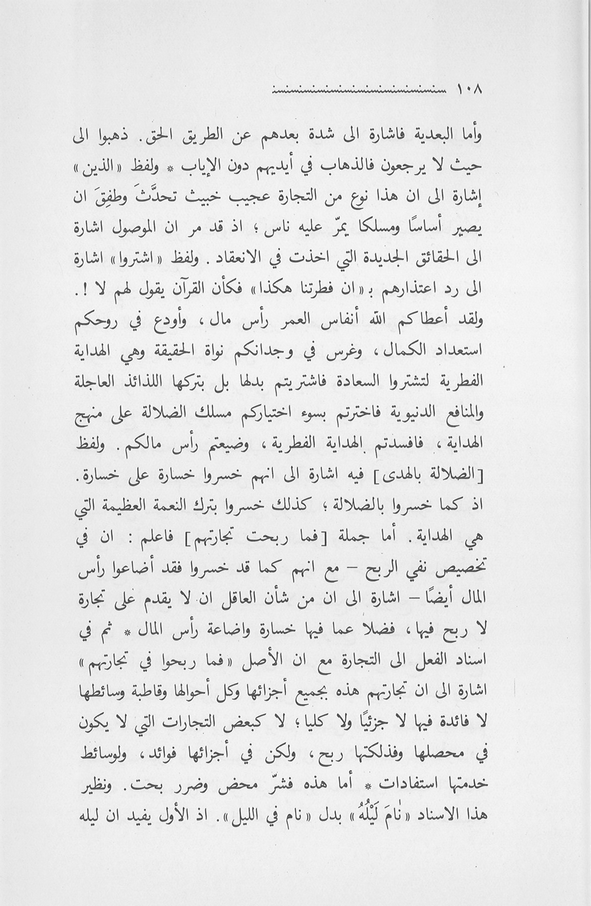 ١٠٨
وأما البعدية فاشارة الى شدة بعدهم عن الطريق الحق. ذهبوا الى
حيث لا يرجعون فالذهاب في أيديهم دون الإياب * ولفظ «الذين»
إشارة الى ان هذا نوع من التجارة عجيب خبيث تحدَّثَ وطفِقَ ان
يصير أساسًا ومسلكا يمرّ عليه ناس؛ اذ قد مر ان الموصول اشارة
الى الحقائق الجديدة التي اخذت في الانعقاد. ولفظ «اشتروا» اشارة
الى رد اعتذارهم بـ «ان فطرتنا هكذا» فكأن القرآن يقول لهم لا !.
ولقد أعطاكم الله أنفاس العمر رأس مال، وأودع في روحكم
استعداد الكمال، وغرس في وجدانكم نواة الحقيقة وهي الهداية
الفطرية لتشتروا السعادة فاشتريتم بدلها بل بتركها اللذائذ العاجلة
والمنافع الدنيوية فاخترتم بسوء اختياركم مسلك الضلالة على منهج
الهداية، فافسدتم الهداية الفطرية، وضيعتم رأس مالكم. ولفظ
[الضلالة بالهدى] فيه اشارة الى انهم خسروا خسارة على خسارة.
اذ كما خسروا بالضلالة؛ كذلك خسروا بترك النعمة العظيمة التي
هي الهداية. أما جملة [فما ربحت تجارتهم] فاعلم : ان في
تخصيص نفي الربح – مع انهم كما قد خسروا فقد أضاعوا رأس
المال أيضًا – اشارة الى ان من شأن العاقل ان لا يقدم على تجارة
لا ربح فيها، فضلا عما فيها خسارة واضاعة رأس المال * ثم في
اسناد الفعل الى التجارة مع ان الأصل «فما ربحوا في تجارتهم»
اشارة الى ان تجارتهم هذه بجميع أجزائها وكل أحوالها وقاطبة وسائطها
لا فائدة فيها لا جزئيًا ولا كليا؛ لا كبعض التجارات التي لا يكون
في محصلها وفذلكتها ربح، ولكن في أجزائها فوائد، ولوسائط
خدمتها استفادات * أما هذه فشرّ محض وضرر بحت. ونظير
هذا الاسناد «نٰامَ لَيْلُهُ» بدل «نام في الليل». اذ الأول يفيد ان ليله